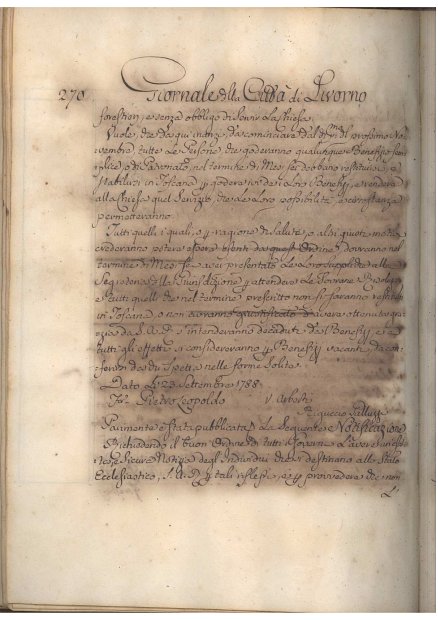 270 Giornale della Città di Livorno
forestieri, e senza obbligo di servir la Chiesa.
Vuole, che da qui innanzi, da cominciare dal dì p.mo del prossimo No-
vembre, tutte le Persone che goderanno qualunque Benefizio sem-
plice, o di Padronato, nel termine di Mesi sei debbano restituirsi, e
stabilirsi in Toscana p godere ivi dei loro Benefizj, e rendere
alla Chiesa quel Servizio, che le loro possibilità, e circostanze
permetteranno.
Tutti quelli i quali, o p ragione di salute, o altri giusti motivi
crederanno potere essere esenti da quest'Ordine, dovranno nel
termine di Mesi sei aver presentate le loro suppliche alla
Segreteria della Giurisdizione, p attendere le Sovrane
e tutti quelli che nel termine prescritto non si saranno restituiti
in Toscana, o non avranno giustificato d'avere ottenuta gra-
zia da S. A. R. s'intenderanno decaduti dai Benefizj, ed a
tutti gli effetti si considereranno p Benefizj vacanti, da con-
ferirsi da chi spetti, nelle forme solite.
Dato li 23 Settembre 1788.
Pietro Leopoldo V
Galluzzi
Parimente è stata pubblicata la seguente Notificazione
Richiedendo il buon Ordine di tutti i Governi l'avere
e sicure Notizie degli Individui che si destinano allo Stato
Ecclesiastico, S. A. R. p tali riflessi, e p provvedere che non